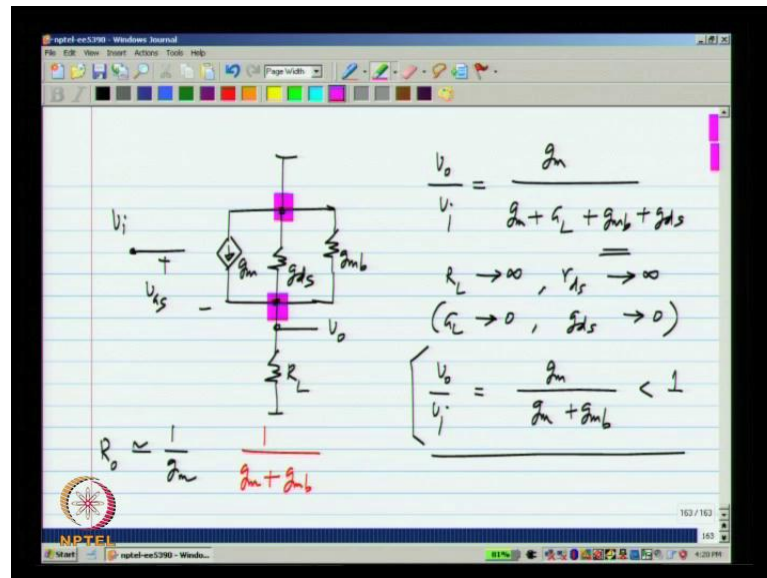 nptel-ee5390 - Windows Journal
File Edit View Insert Actions Tools Help
Page Width
B I
Vi
+
VGS
-
gm
gds
gmb
Vo
RL
Ro ≃ 1/gm
1/(gm + gmb)
Vo/Vi = gm/(gm + GL + gmb + gds)
RL → ∞, rds → ∞
(GL → 0, gds → 0)
Vo/Vi = gm/(gm + gmb) < 1
163 / 163
163
NPTEL
Start
nptel-ee5390 - Windo...
81%
4:20 PM